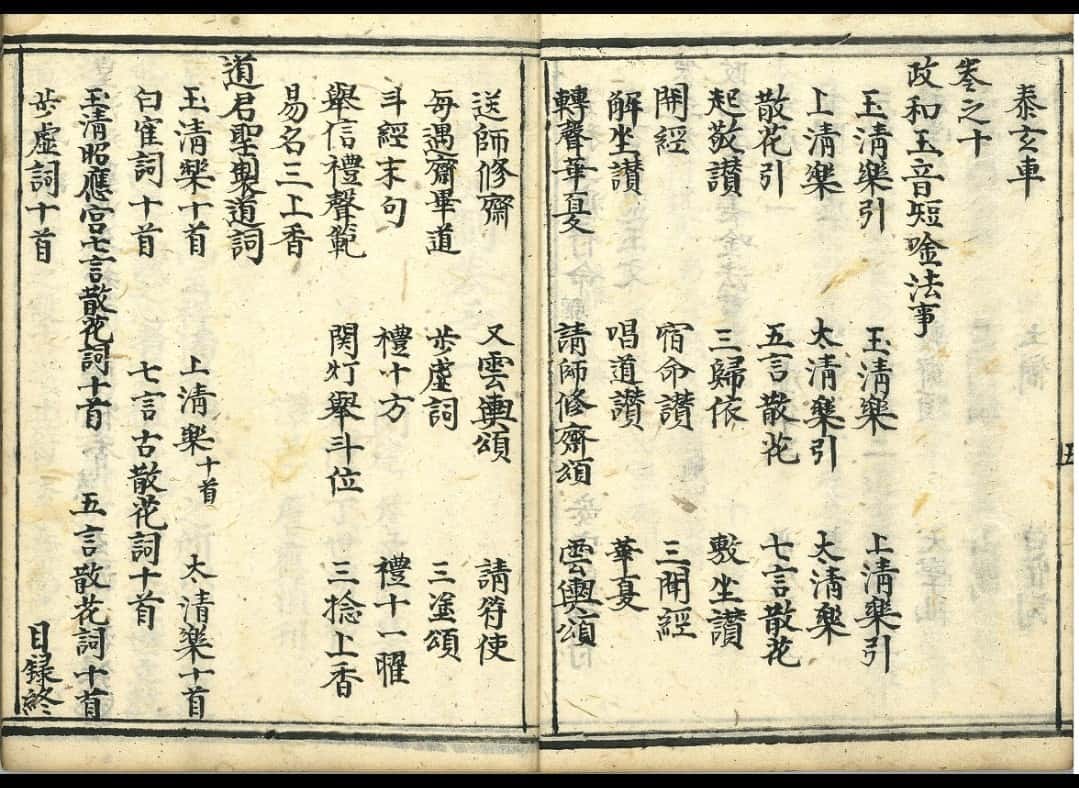 泰玄車
卷之十
政和玉音短唫法事
玉清樂引 玉清樂 上清樂引
上清樂 太清樂引 太清樂
散花引 五言散花 七言散花
起敬讃 三歸依 敷坐讃
開經 宿命讃 三開經
解坐讃 唱道讃 華夏
轉聲華夏 請師修齋頌 雲輿頌
送師修齋 又雲輿頌 請符使
每遇齋畢道 步虛詞 三塗頌
斗經末句 禮十方 禮十一曜
舉信禮聲範 関灯舉斗位 三捻上香
易名三上香
道君聖製道詞
玉清樂十首 上清樂十首 太清樂十首
白寉詞十首 七言古散花詞十首
玉清昭應宮七言散花詞十首 五言散花詞十首
步虛詞十首 目録終